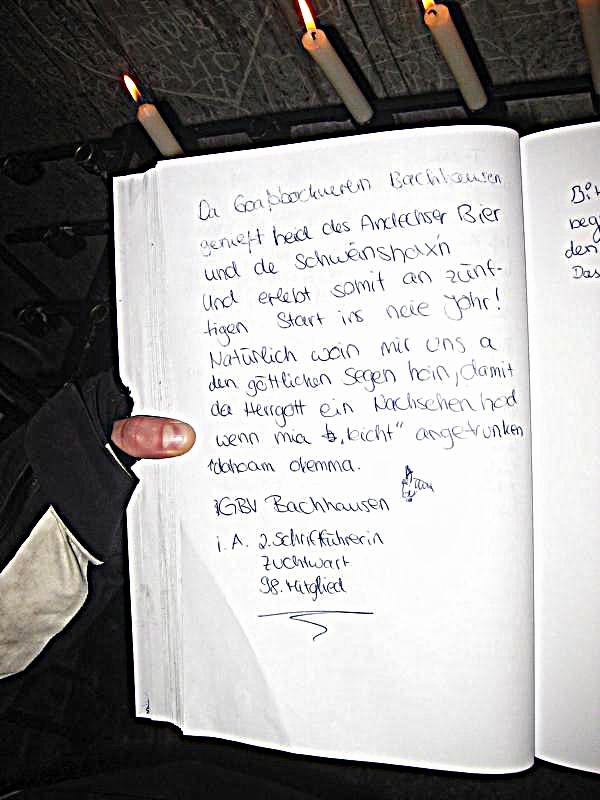 Da Goaßbockverein Bachhausen
genießt heid des Andechser Bier
und de Schweinshax'n
und erlebt somit an zünf-
tigen Start ins neie Johr!
Natürlich woin mir uns a
den göttlichen Segen hoin, damit
da Herrgott ein Nachsehen hod
wenn mia "bicht" angetrunken
dahoam okemma.
GBV Bachhausen
i. A. 2. Schriftführerin
Zuchtwart
98. Mitglied
Bit
beg
den
Das